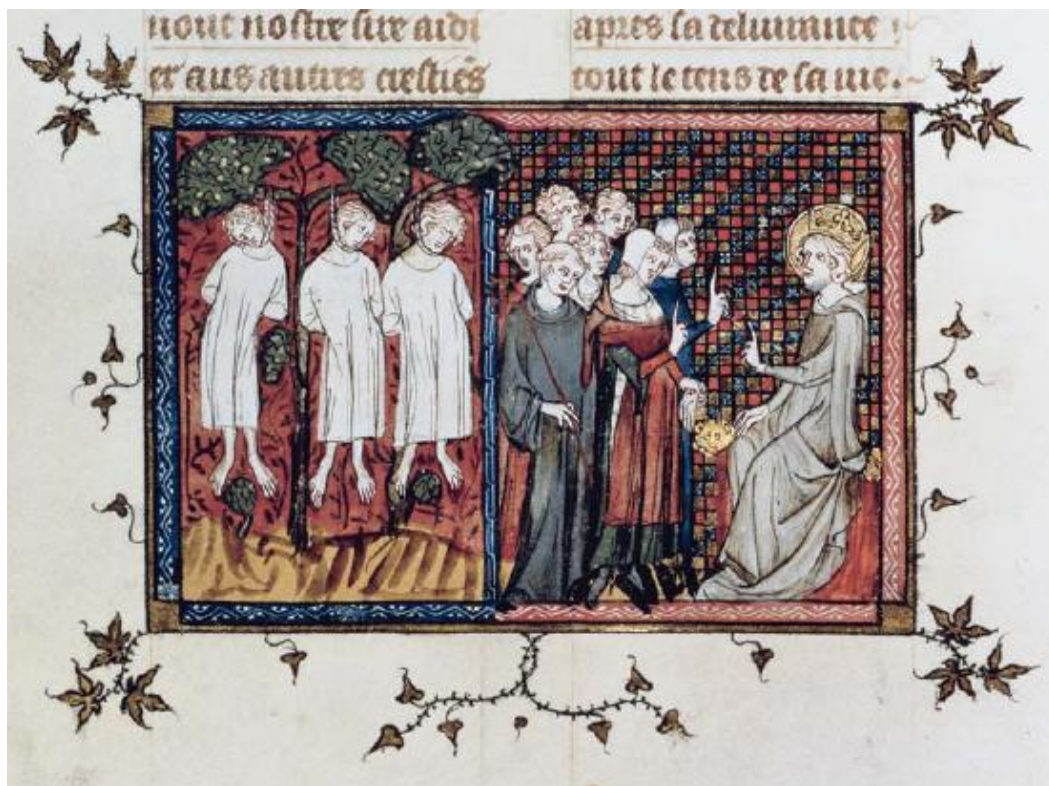 uout nostre sire aidi
er aus autres crestiẽs
apres sa deliurance
tout le tens de sa uie.